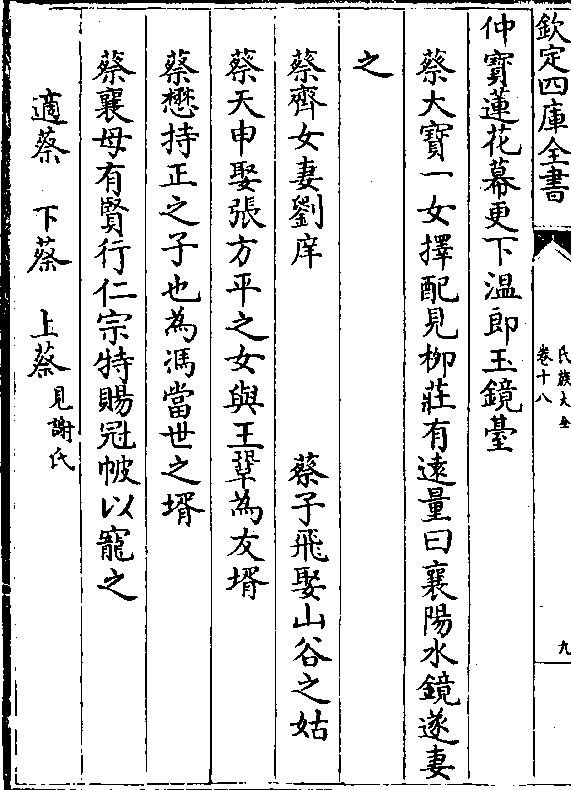 欽定四庫全書
氏族大全
卷十八
九
仲寶蓮花幕更下溫郎玉鏡臺
蔡大寶一女擇配見柳莊有遠量曰襄陽水鏡遂妻
之
蔡齊女妻劉庠　蔡子飛娶山谷之姑
蔡天申娶張方平之女與王鞏為友壻
蔡懋持正之子也為馮當世之壻
蔡襄母有賢行仁宗特賜冠帔以寵之
適蔡　下蔡　上蔡見謝氏